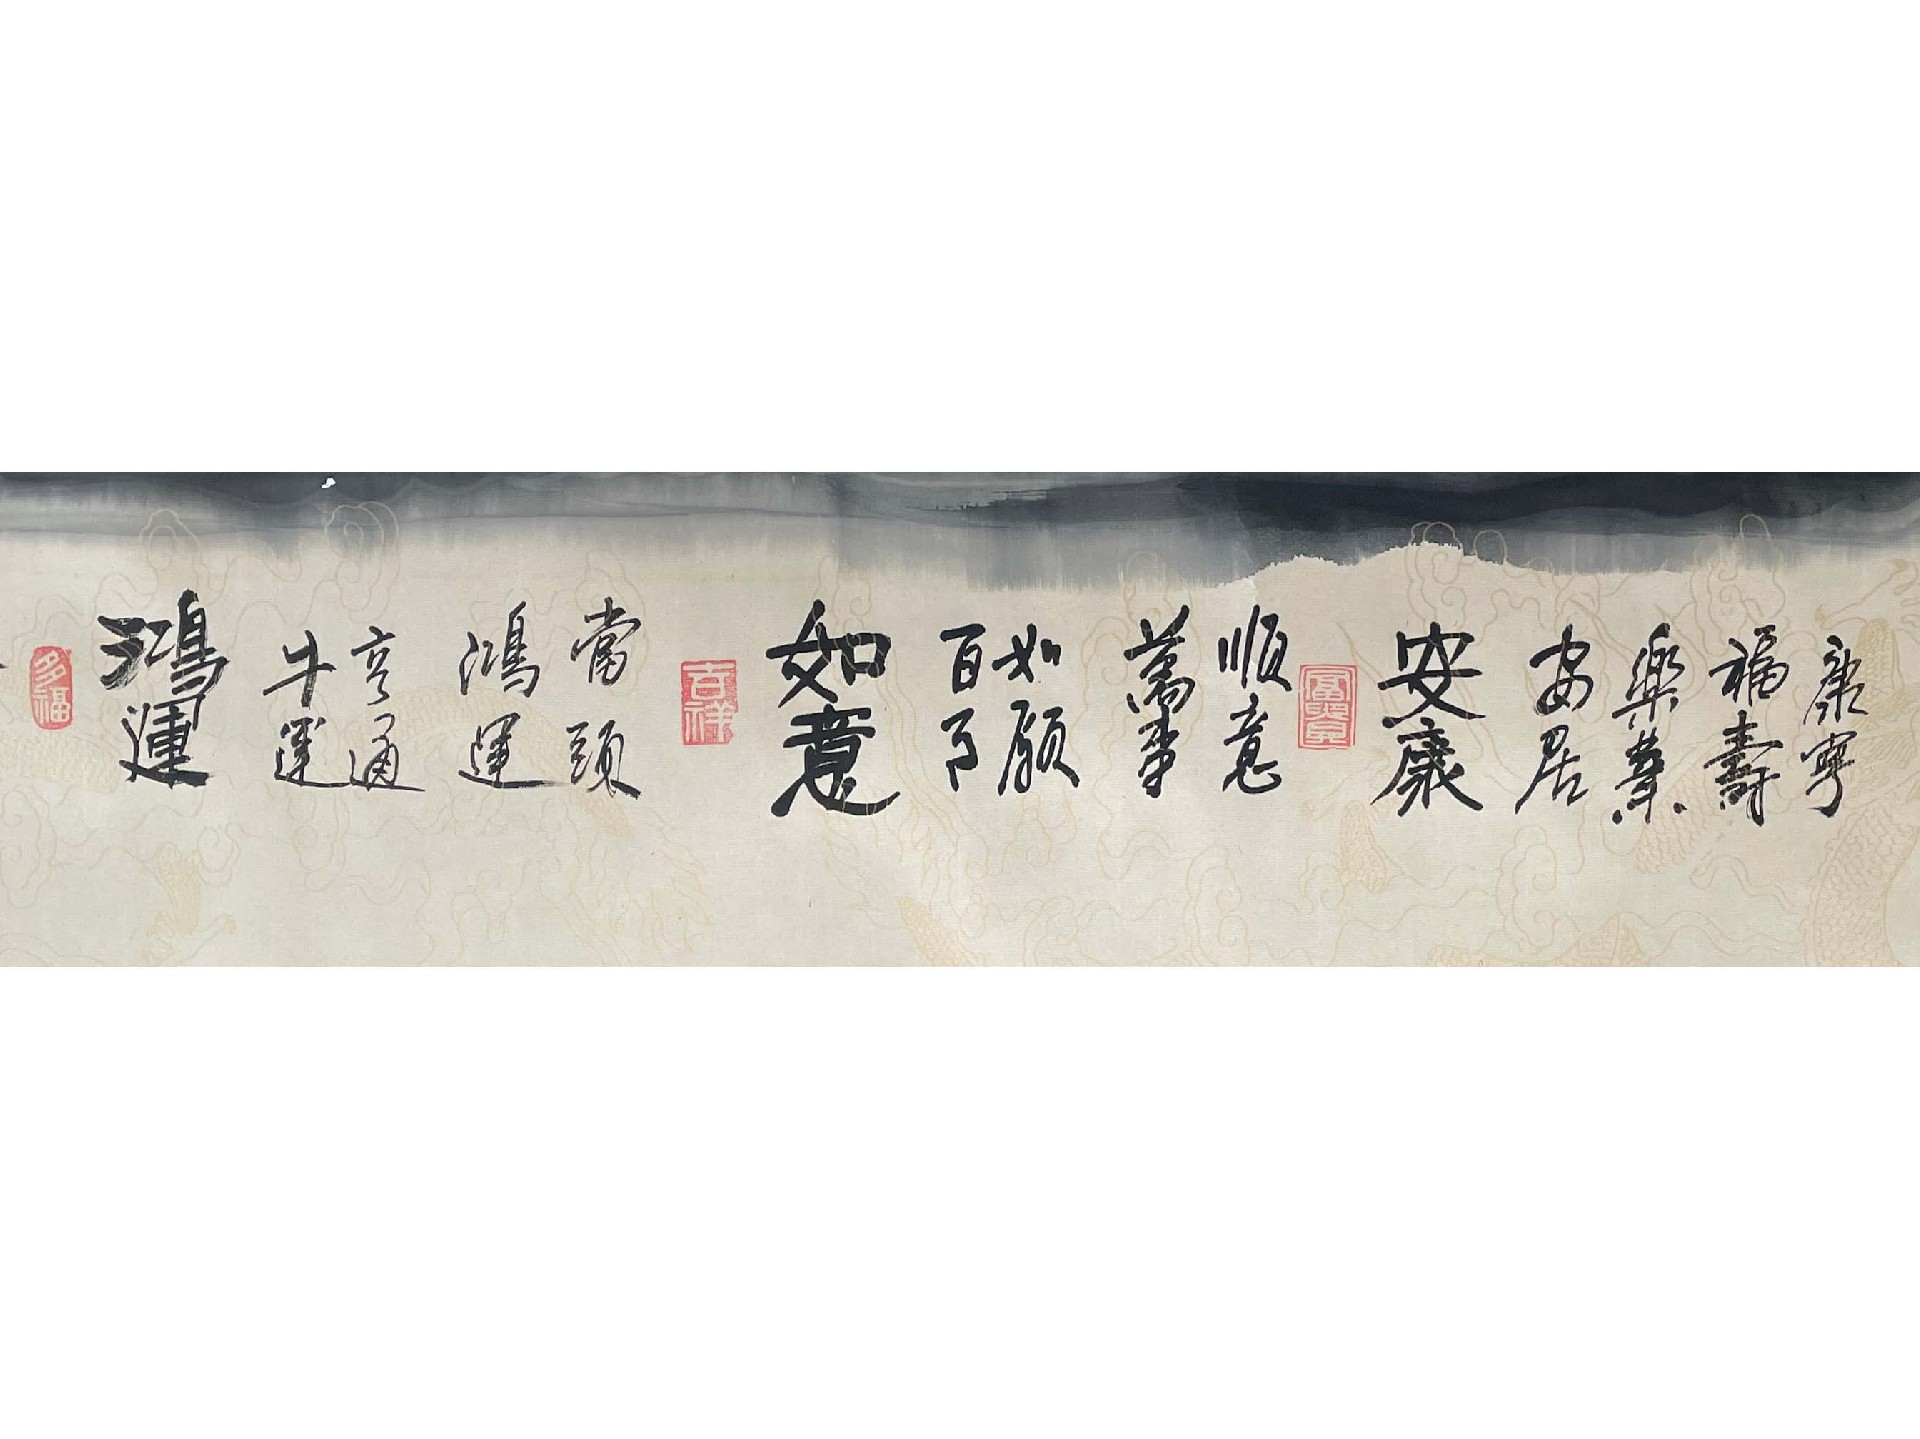 康寧
福壽
樂業
安居
安康
富貴
順意
萬事
如願
百事
如意
吉祥
當頭
鴻運
亨通
牛運
鴻運
多福